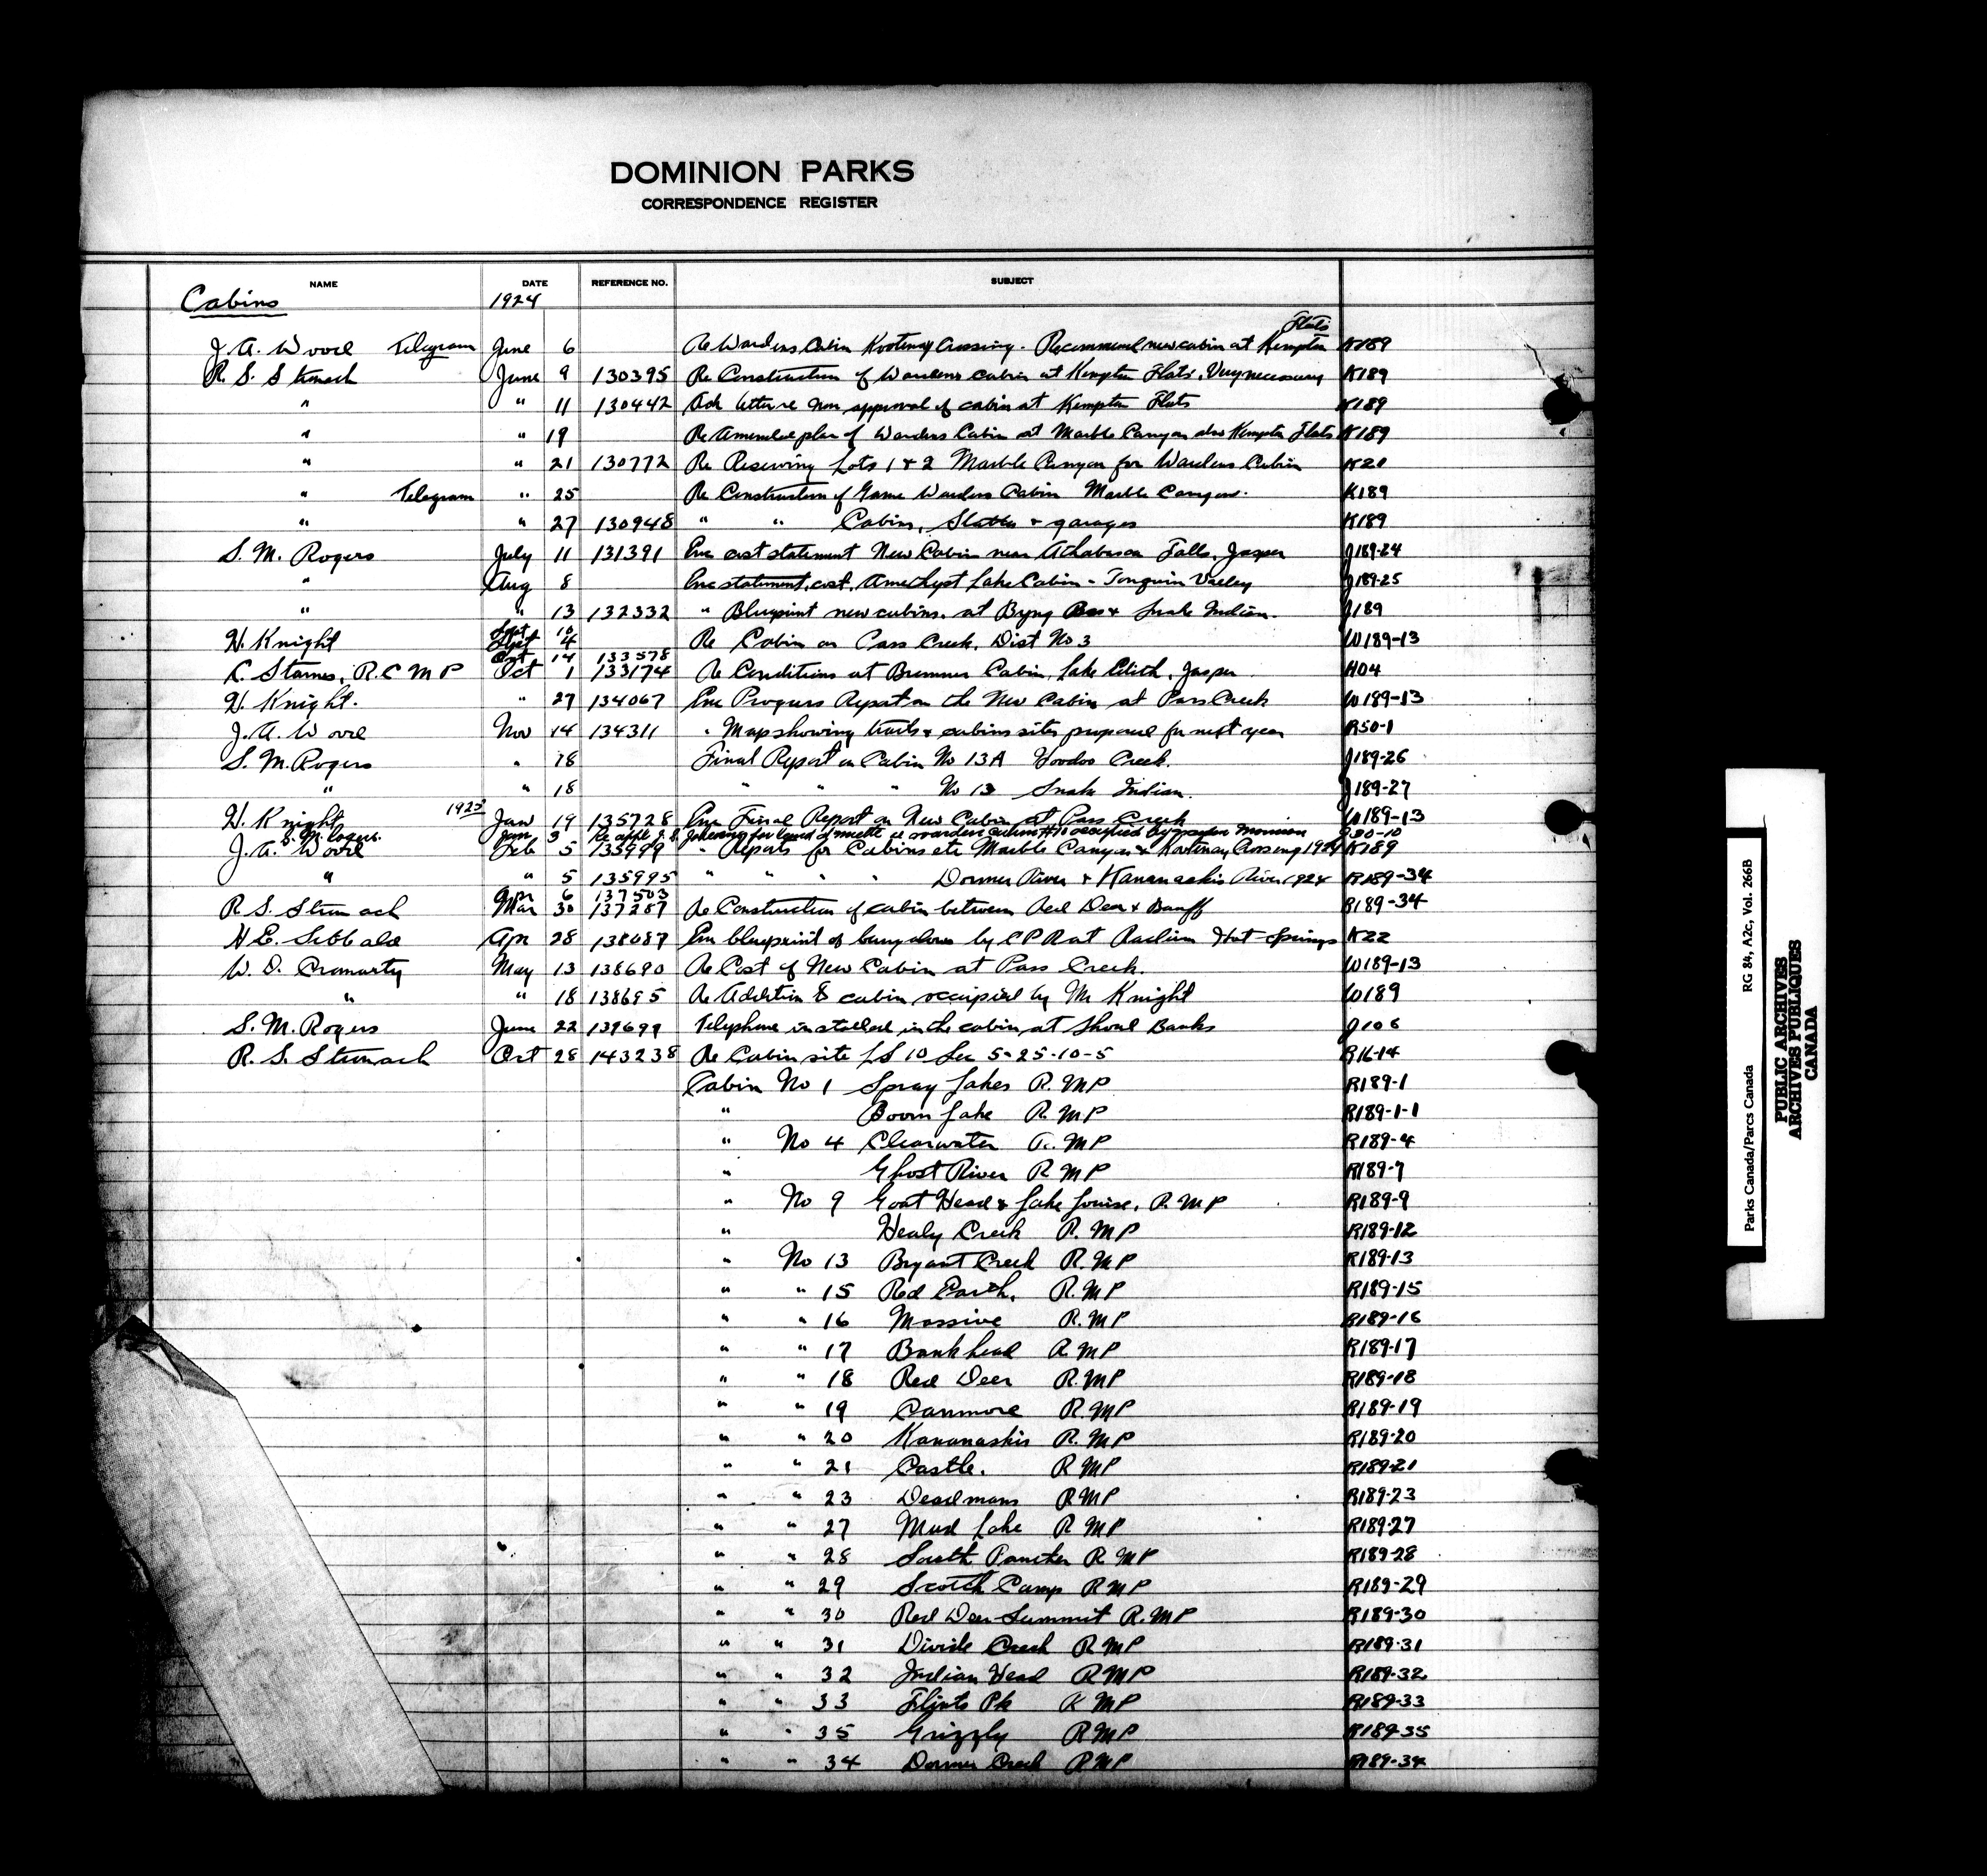 DOMINION PARKS
CORRESPONDENCE REGISTER
NAME DATE REFERENCE NO. SUBJECT
Cabins 1924
Flats
J. A. Wood Telegram June 6 Re Wardens Cabin Kootenay Crossing. Recommend new cabin at Kempton K189
R. S. Stronach June 9 130395 Re Construction of Wardens cabin at Kempton Flats. Very necessary K189
" " 11 130442 Ack letter re non approval of cabin at Kempton Flats K189
" " 19 Re Amended plan of Wardens Cabin at Marble Canyon also Kempton Flats K189
" " 21 130772 Re Reserving Lots 1 & 2 Marble Canyon for Wardens Cabin K21
" Telegram " 25 Re Construction of Game Wardens Cabin Marble Canyon. K189
" " 27 130948 " " Cabin, Stables & garages K189
S. M. Rogers July 11 131391 Enc cost statement New Cabin near Athabasca Falls, Jasper J189-24
" Aug 8 Enc statement, cost, Amethyst Lake Cabin - Tonquin Valley J189-25
" " 13 132332 " Blueprint new cabins. at Byng Pass & Snake Indian. J189
Sept 10
H. Knight Sept 4 Re Cabin on Pass Creek, Dist No 3 W189-13
Oct 14 133578
C. Starnes, R.C M P Oct 1 133174 Re Conditions at Bremner Cabin, Lake Edith, Jasper H04
H. Knight. " 27 134067 Enc Progress Report on the New Cabin at Pass Creek W189-13
J. A. Wood Nov 14 134311 " Map showing trails & cabins sites proposed for next year R50-1
S. M. Rogers " 18 Final Report on Cabin No 13A Hoodoo Creek. J189-26
" " 18 " " " No 13 Snake Indian. J189-27
1925
H. Knight Jan 19 135728 Enc Final Report on New Cabin at Pass Creek W189-13
S. M. Rogers. Jan 3 Re appl J. S. for land at Miette re wardens cabin #1 occupied by Morrison
J. A. Wood Feb 5 135999 " Reports for Cabins etc Marble Canyon & Kootenay Crossing 1924 K189
" " 5 135995 " " " " Dormer River & Kananaskis River 1924 R189-34
Apr 6 137503
R. S. Stronach Mar 30 137287 Re Construction of cabin between Red Deer & Banff R189-34
H. E. Sibbald Apr 28 138087 Enc blueprint of bungalows by C P R at Radium Hot Springs K22
W. D. Cromarty May 13 138690 Re Cost of New Cabin at Pass Creek. W189-13
" " 18 138695 Re Addition to cabin occupied by Mr Knight W189
S. M. Rogers June 22 139699 Telephone installed in the cabin, at Shovel Banks J106
R. S. Stronach Oct 28 143238 Re Cabin site LS 10 Sec 5-25-10-5 R16-14
Cabin No 1 Spray Lakes R. M P R189-1
" Boom Lake R. M P R189-1-1
" No 4 Clearwater R. M P R189-4
" Ghost River R M P R189-7
" No 9 Goat Head & Lake Louise. R. M P R189-9
" Healy Creek R. M P R189-12
" No 13 Bryant Creek R. M P R189-13
" " 15 Red Earth. R. M P R189-15
" " 16 Massive R. M P R189-16
" " 17 Bankhead R. M P R189-17
" " 18 Red Deer R. M P R189-18
" " 19 Canmore R. M P R189-19
" " 20 Kananaskis R. M P R189-20
" " 21 Castle. R M P R189-21
" " 23 Deadmans R M P R189-23
" " 27 Mud Lake R M P R189-27
" " 28 South Panther R M P R189-28
" " 29 Scotch Camp R M P R189-29
" " 30 Red Deer Summit R. M P R189-30
" " 31 Divide Creek R M P R189-31
" " 32 Indian Head R M P R189-32
" " 33 Flints Pk R M P R189-33
" " 35 Grizzly R M P R189-35
" " 34 Dormer Creek R M P R189-34
Parks Canada/Parcs Canada RG 84, A2c, Vol. 266B
PUBLIC ARCHIVES
ARCHIVES PUBLIQUES
CANADA